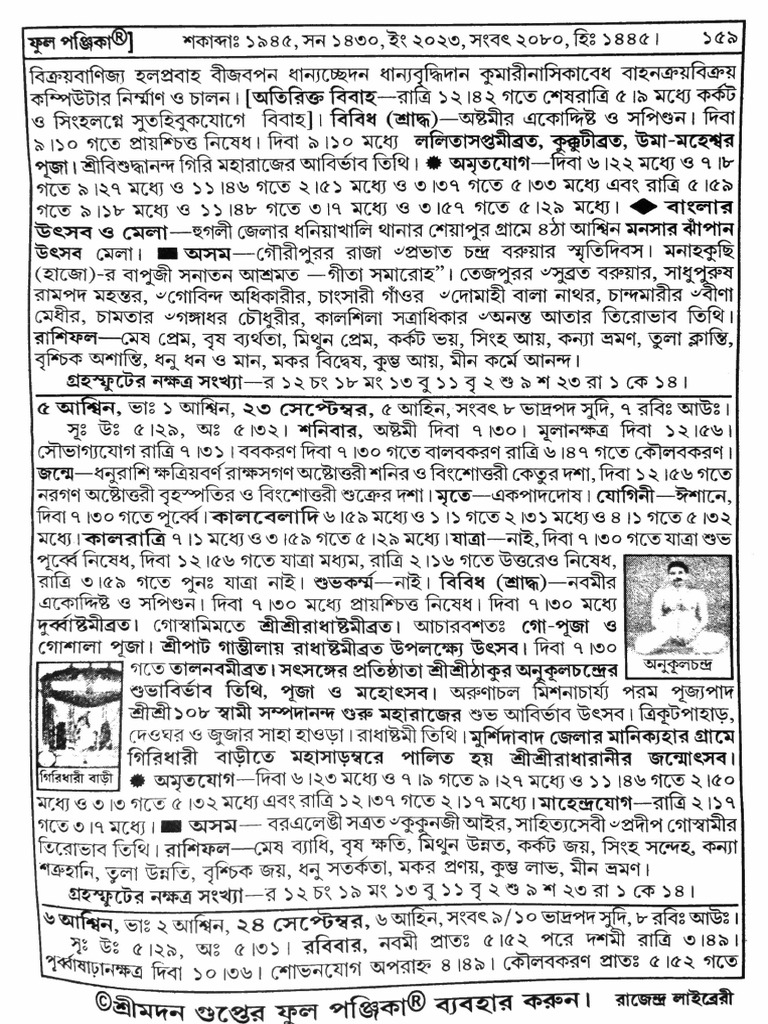 ফুল পঞ্জিকা®] শকাব্দাঃ ১৯৪৫, সন ১৪৩০, ইং ২০২৩, সংবৎ ২০৮০, হিঃ ১৪৪৫। ১৫৯
বিক্রয়বাণিজ্য হলপ্রবাহ বীজবপন ধান্যচ্ছেদন ধান্যবৃদ্ধিদান কুমারীনাসিকাবেধ বাহনক্রয়বিক্রয়
কম্পিউটার নির্ম্মাণ ও চালন। [অতিরিক্ত বিবাহ—রাত্রি ১২।৪২ গতে শেষরাত্রি ৫।৯ মধ্যে কর্কট
ও সিংহলগ্নে সুতহিবুকযোগে বিবাহ]। বিবিধ (শ্রাদ্ধ)—অষ্টমীর একোদ্দিষ্ট ও সপিণ্ডন। দিবা
৯।১০ গতে প্রায়শ্চিত্ত নিষেধ। দিবা ৯।১০ মধ্যে ললিতাসপ্তমীব্রত, কুক্কুটীব্রত, উমা-মহেশ্বর
পূজা। শ্রীবিশুদ্ধানন্দ গিরি মহারাজের আবির্ভাব তিথি। ✹ অমৃতযোগ—দিবা ৬।২২ মধ্যে ও ৭।৮
গতে ৯।২৭ মধ্যে ও ১১।৪৬ গতে ২।৫১ মধ্যে ও ৩।৩৭ গতে ৫।৩৩ মধ্যে এবং রাত্রি ৫।৫৯
গতে ৯।১৮ মধ্যে ও ১১।৪৮ গতে ৩।৭ মধ্যে ও ৩।৫৭ গতে ৫।২৯ মধ্যে। ◆ বাংলার
উৎসব ও মেলা—হুগলী জেলার ধনিয়াখালি থানার শেয়াপুর গ্রামে ৪ঠা আশ্বিন মনসার ঝাঁপান
উৎসব মেলা। ■ অসম—গৌরীপুরর রাজা ৺প্রভাত চন্দ্র বরুয়ার স্মৃতিদিবস। মনাহকুছি
(হাজো)-র বাপুজী সনাতন আশ্রমত —গীতা সমারোহ”। তেজপুরর ৺সুব্রত বরুয়ার, সাধুপুরুষ
রামপদ মহন্তর, ৺গোবিন্দ অধিকারীর, চাংসারী গাঁওর ৺দোমাহী বালা নাথর, চান্দমারীর ৺বীণা
মেধীর, চামতার ৺গঙ্গাধর চৌধুরীর, কালশিলা সত্রাধিকার ৺অনন্ত আতার তিরোভাব তিথি।
রাশিফল—মেষ প্রেম, বৃষ ব্যর্থতা, মিথুন প্রেম, কর্কট ভয়, সিংহ আয়, কন্যা ভ্রমণ, তুলা ক্লান্তি,
বৃশ্চিক অশান্তি, ধনু ধন ও মান, মকর বিদ্বেষ, কুম্ভ আয়, মীন কর্মে আনন্দ।
গ্রহস্ফুটের নক্ষত্র সংখ্যা—র ১২ চং ১৮ মং ১৩ বু ১১ বৃ ২ শু ৯ শ ২৩ রা ১ কে ১৪।
৫ আশ্বিন, ভাঃ ১ আশ্বিন, ২৩ সেপ্টেম্বর, ৫ আহিন, সংবৎ ৮ ভাদ্রপদ সুদি, ৭ রবিঃ আউঃ।
সূঃ উঃ ৫।২৯, অঃ ৫।৩২। শনিবার, অষ্টমী দিবা ৭।৩০। মূলানক্ষত্র দিবা ১২।৫৬।
সৌভাগ্যযোগ রাত্রি ৭।৩১। ববকরণ দিবা ৭।৩০ গতে বালবকরণ রাত্রি ৬।৪৭ গতে কৌলবকরণ।
জন্মে—ধনুরাশি ক্ষত্রিয়বর্ণ রাক্ষসগণ অষ্টোত্তরী শনির ও বিংশোত্তরী কেতুর দশা, দিবা ১২।৫৬ গতে
নরগণ অষ্টোত্তরী বৃহস্পতির ও বিংশোত্তরী শুক্রের দশা। মৃতে—একপাদদোষ। যোগিনী—ঈশানে,
দিবা ৭।৩০ গতে পূর্ব্বে। কালবেলাদি ৬।৫৯ মধ্যে ও ১।১ গতে ২।৩১ মধ্যে ও ৪।১ গতে ৫।৩২
মধ্যে। কালরাত্রি ৭।১ মধ্যে ও ৩।৫৯ গতে ৫।২৯ মধ্যে। যাত্রা—নাই, দিবা ৭।৩০ গতে যাত্রা শুভ
পূর্ব্বে নিষেধ, দিবা ১২।৫৬ গতে যাত্রা মধ্যম, রাত্রি ২।১৬ গতে উত্তরেও নিষেধ,
রাত্রি ৩।৫৯ গতে পুনঃ যাত্রা নাই। শুভকর্ম্ম—নাই। বিবিধ (শ্রাদ্ধ)—নবমীর
একোদ্দিষ্ট ও সপিণ্ডন। দিবা ৭।৩০ মধ্যে প্রায়শ্চিত্ত নিষেধ। দিবা ৭।৩০ মধ্যে
দুর্ব্বাষ্টমীব্রত। গোস্বামিমতে শ্রীশ্রীরাধাষ্টমীব্রত। আচারবশতঃ গো-পূজা ও
গোশালা পূজা। শ্রীপাট গাম্ভীলায় রাধাষ্টমীব্রত উপলক্ষ্যে উৎসব। দিবা ৭।৩০
অনুকূলচন্দ্র
গতে তালনবমীব্রত। সৎসঙ্গের প্রতিষ্ঠাতা শ্রীশ্রীঠাকুর অনুকূলচন্দ্রের
শুভাবির্ভাব তিথি, পূজা ও মহোৎসব। অরুণাচল মিশনাচার্য্য পরম পূজ্যপাদ
শ্রীশ্রী১০৮ স্বামী সম্পদানন্দ গুরু মহারাজের শুভ আবির্ভাব উৎসব। ত্রিকূটপাহাড়,
দেওঘর ও জুজার সাহা হাওড়া। রাধাষ্টমী তিথি। মুর্শিদাবাদ জেলার মানিক্যহার গ্রামে
গিরিধারী বাড়ীতে মহাসাড়ম্বরে পালিত হয় শ্রীশ্রীরাধারানীর জন্মোৎসব।
গিরিধারী বাড়ী
✹ অমৃতযোগ—দিবা ৬।২৩ মধ্যে ও ৭।৯ গতে ৯।২৭ মধ্যে ও ১১।৪৬ গতে ২।৫০
মধ্যে ও ৩।৩ গতে ৫।৩২ মধ্যে এবং রাত্রি ১২।৩৭ গতে ২।১৭ মধ্যে। মাহেন্দ্রযোগ—রাত্রি ২।১৭
গতে ৩।৭ মধ্যে। ■ অসম— বরএলেঙী সত্রত ৺কুকুনজী আইর, সাহিত্যসেবী ৺প্রদীপ গোস্বামীর
তিরোভাব তিথি। রাশিফল—মেষ ব্যাধি, বৃষ ক্ষতি, মিথুন উন্নত, কর্কট জয়, সিংহ সন্দেহ, কন্যা
শত্রুহানি, তুলা উন্নতি, বৃশ্চিক জয়, ধনু সতর্কতা, মকর প্রণয়, কুম্ভ লাভ, মীন ভ্রমণ।
গ্রহস্ফুটের নক্ষত্র সংখ্যা—র ১২ চং ১৯ মং ১৩ বু ১১ বৃ ২ শু ৯ শ ২৩ রা ১ কে ১৪।
৬ আশ্বিন, ভাঃ ২ আশ্বিন, ২৪ সেপ্টেম্বর, ৬ আহিন, সংবৎ ৯/১০ ভাদ্রপদ সুদি, ৮ রবিঃ আউঃ।
সূঃ উঃ ৫।২৯, অঃ ৫।৩১। রবিবার, নবমী প্রাতঃ ৫।৫২ পরে দশমী রাত্রি ৩।৪৯।
পূর্ব্বাষাঢ়ানক্ষত্র দিবা ১০।৩৬। শোভনযোগ অপরাহ্ন ৪।৪৯। কৌলবকরণ প্রাতঃ ৫।৫২ গতে
©শ্রীমদন গুপ্তের ফুল পঞ্জিকা® ব্যবহার করুন। রাজেন্দ্র লাইব্রেরী